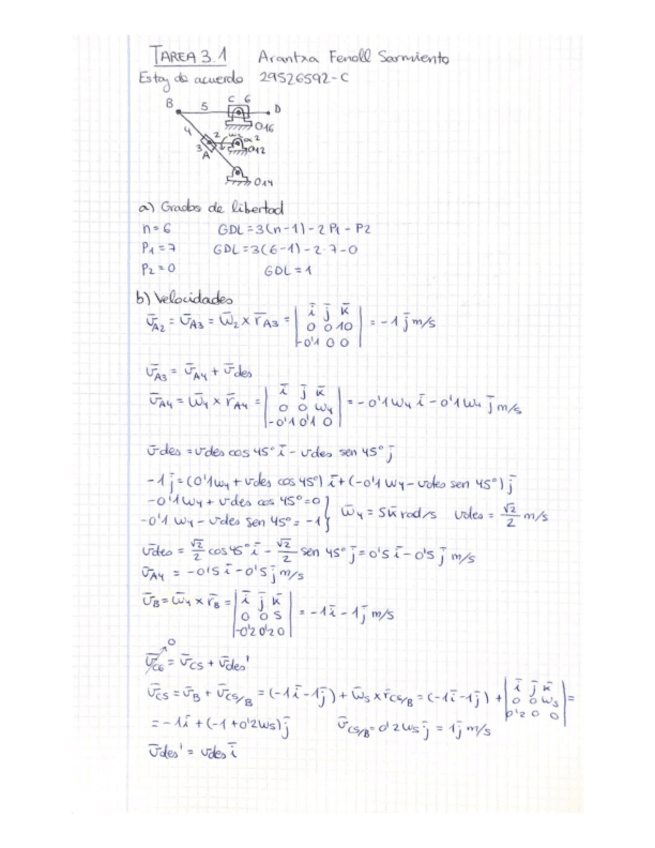 TAREA 3.1 Arantxa Fenoll Sarmiento
Estoy de acuerdo 29526592-C
B 5 C 6 D
O16
4 2 ω2 2
3 O12
A
O14
a) Grados de libertad
n=6 GDL=3(n-1)-2P1-P2
P1=7 GDL=3(6-1)-2·7-0
P2=0 GDL=1
b) Velocidades
v̄A2 = v̄A3 = ω̄2 x r̄A3 = | ī j̄ k̄ | 0 0 10 | -0'1 0 0 | = -1 j̄ m/s
v̄A3 = v̄A4 + v̄des
v̄A4 = ω̄4 x r̄A4 = | ī j̄ k̄ | 0 0 ω4 | -0'1 0'1 0 | = -0'1ω4 ī - 0'1ω4 j̄ m/s
v̄des = vdes cos 45° ī - vdes sen 45° j̄
-1 j̄ = (0'1ω4 + vdes cos 45°) ī + (-0'1ω4 - vdes sen 45°) j̄
-0'1ω4 + vdes cos 45° = 0
-0'1ω4 - vdes sen 45° = -1 } ω̄4 = 5k̄ rad/s vdes = √2/2 m/s
v̄des = √2/2 cos 45° ī - √2/2 sen 45° j̄ = 0'5 ī - 0'5 j̄ m/s
v̄A4 = -0'5 ī - 0'5 j̄ m/s
v̄B = ω̄4 x r̄B = | ī j̄ k̄ | 0 0 5 | -0'2 0'2 0 | = -1 ī - 1 j̄ m/s
0
v̄C6 = v̄C5 + v̄des'
v̄C5 = v̄B + v̄C5/B = (-1ī-1j̄) + ω̄5 x r̄C5/B = (-1ī-1j̄) + | ī j̄ k̄ | 0 0 ω5 | 0'2 0 0 | =
= -1ī + (-1+0'2ω5) j̄ v̄C5/B = 0'2ω5 j̄ = 1 j̄ m/s
v̄des' = vdes ī